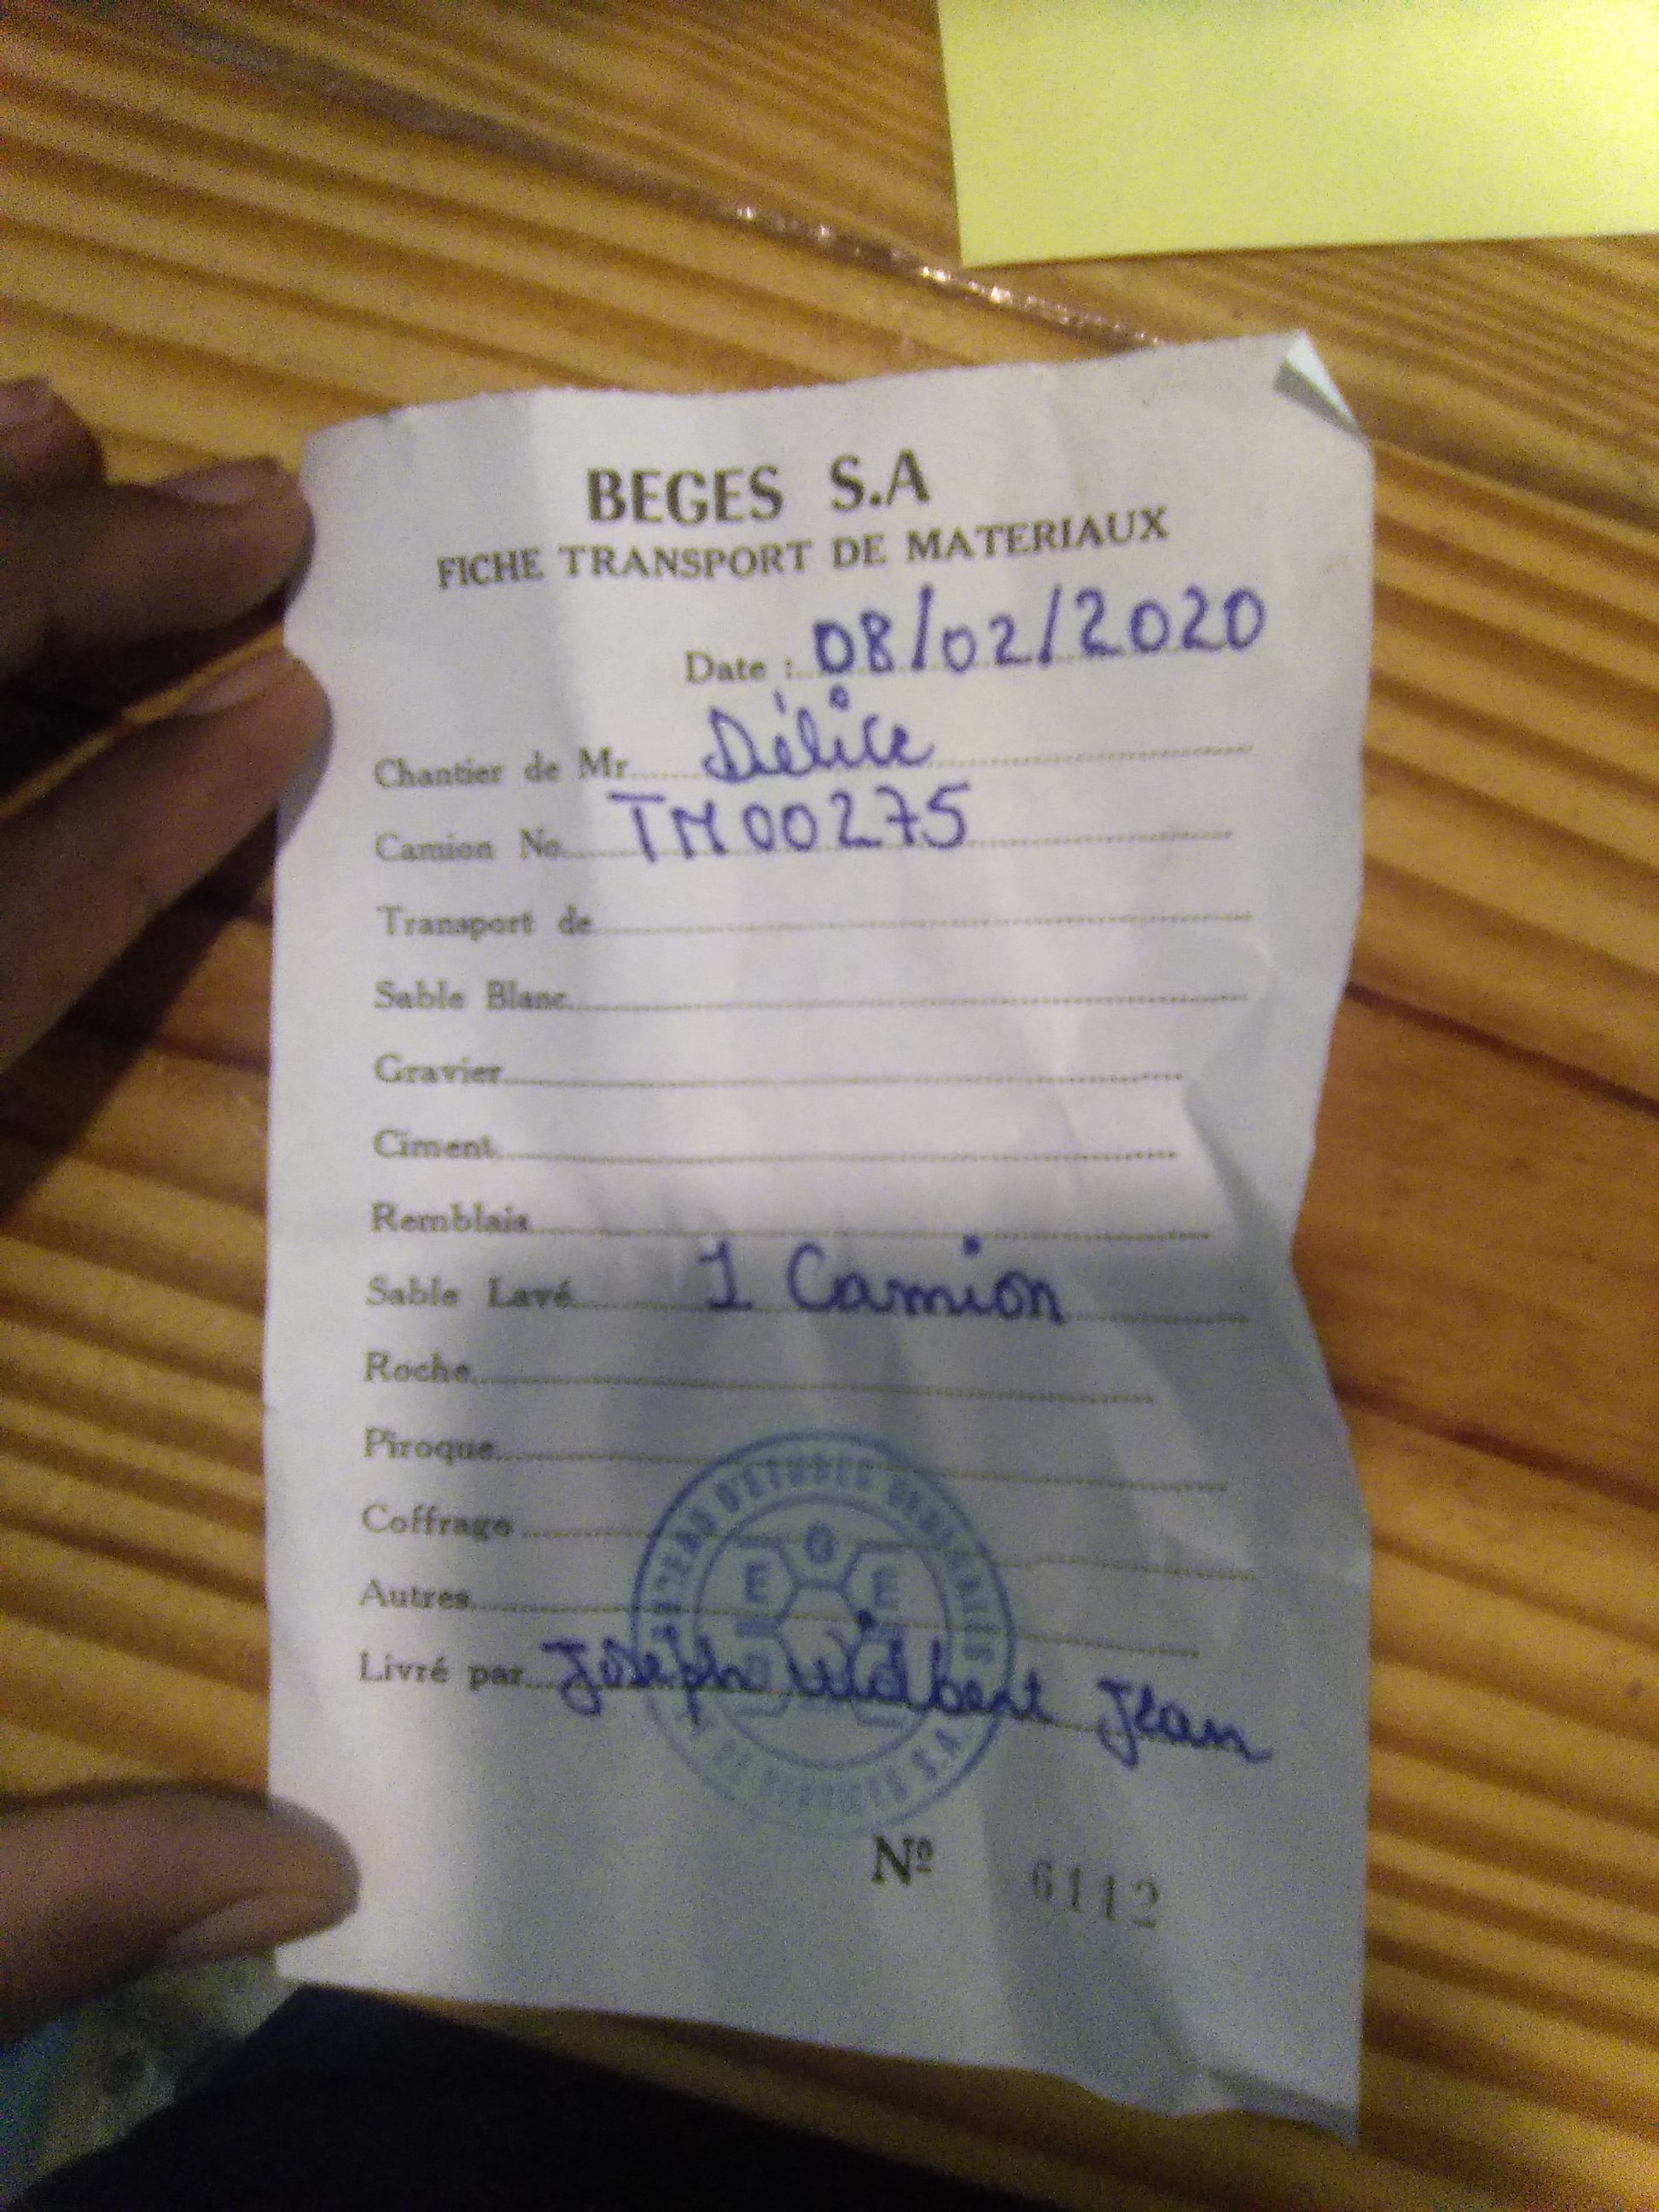 BEGES S.A
FICHE TRANSPORT DE MATERIAUX
Date : 08/02/2020
Chantier de Mr Délice
Camion No. TM00275
Transport de
Sable Blanc
Gravier
Ciment
Remblais
Sable Lavé 1 Camion
Roche
Piroque
Coffrage
Autres
Livré par Joseph Widbent Jean
D'ETUDES
E G E
S.A.
Nº 6112